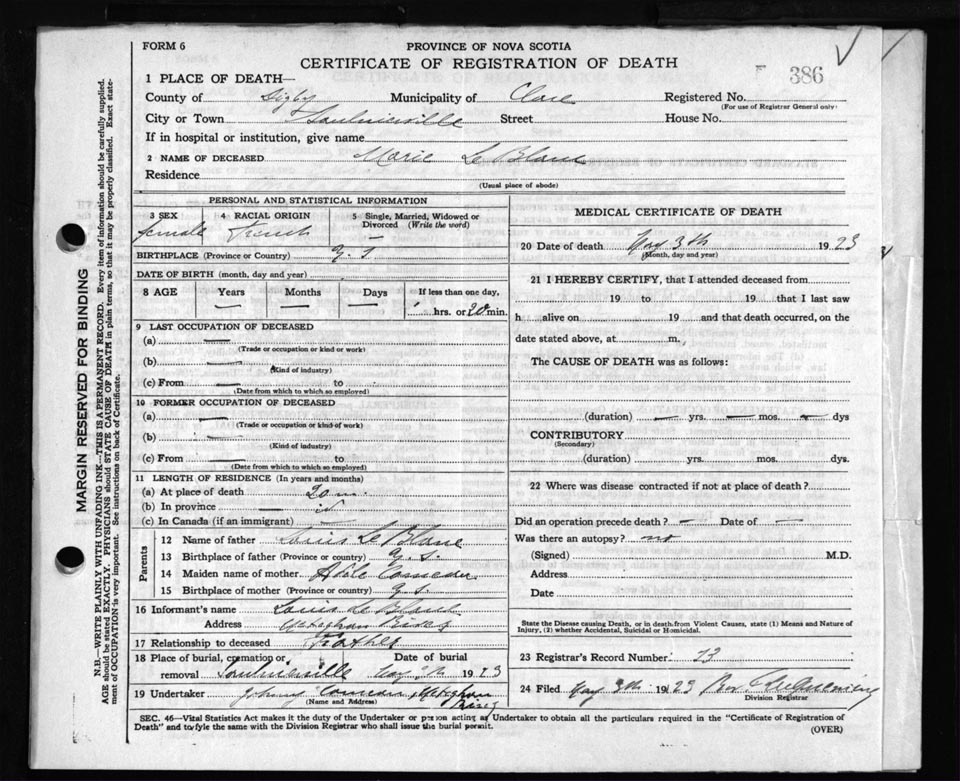 FORM 6
PROVINCE OF NOVA SCOTIA
CERTIFICATE OF REGISTRATION OF DEATH
386
1 PLACE OF DEATH—
County of Digby Municipality of Clare Registered No.
(For use of Registrar General only)
City or Town Saulnierville Street House No.
If in hospital or institution, give name
2 NAME OF DECEASED Marie Le Blanc
Residence
(Usual place of abode)
PERSONAL AND STATISTICAL INFORMATION
3 SEX 4 RACIAL ORIGIN 5 Single, Married, Widowed or Divorced (Write the word)
female French —
BIRTHPLACE (Province or Country) N. S.
DATE OF BIRTH (month, day and year)
8 AGE Years Months Days If less than one day,
— — — hrs. or 20 min.
9 LAST OCCUPATION OF DECEASED
(a) —
(Trade or occupation or kind or work)
(b) —
(Kind of industry)
(c) From — to
(Date from which to which so employed)
10 FORMER OCCUPATION OF DECEASED
(a) —
(Trade or occupation or kind of work)
(b) —
(Kind of industry)
(c) From — to
(Date from which to which so employed)
11 LENGTH OF RESIDENCE (In years and months)
(a) At place of death 20 m.
(b) In province —
(c) In Canada (if an immigrant) —
Parents
12 Name of father Louis Le Blanc
13 Birthplace of father (Province or country) N. S.
14 Maiden name of mother Adèle Comeau
15 Birthplace of mother (Province or country) N. S.
16 Informant's name Louis Le Blanc
Address Meteghan River
17 Relationship to deceased Father
18 Place of burial, cremation or removal Saulnierville Date of burial 1923
19 Undertaker Johnny Comeau, Meteghan River
(Name and Address)
MEDICAL CERTIFICATE OF DEATH
20 Date of death 3th 1923
(Month, day and year)
21 I HEREBY CERTIFY, that I attended deceased from
19 to 19 that I last saw
h alive on 19 and that death occurred, on the
date stated above, at m.,
The CAUSE OF DEATH was as follows:
(duration) — yrs. — mos. — dys
CONTRIBUTORY
(Secondary)
(duration) yrs. mos. dys.
22 Where was disease contracted if not at place of death?
Did an operation precede death? — Date of —
Was there an autopsy? no
(Signed) M.D.
Address
Date
State the Disease causing Death, or in death from Violent Causes, state (1) Means and Nature of
Injury, (2) whether Accidental, Suicidal or Homicidal.
23 Registrar's Record Number: 73
24 Filed 3th 1923 Rev.
Division Registrar
SEC. 46—Vital Statistics Act makes it the duty of the Undertaker or person acting as Undertaker to obtain all the particulars required in the "Certificate of Registration of
Death" and to file the same with the Division Registrar who shall issue the burial permit.
(OVER)
MARGIN RESERVED FOR BINDING
N.B.—WRITE PLAINLY WITH UNFADING INK—THIS IS A PERMANENT RECORD. Every item of information should be carefully supplied.
AGE should be stated EXACTLY. PHYSICIANS should STATE CAUSE OF DEATH in plain terms, so that it may be properly classified. Exact state-
ment of OCCUPATION is very important. See instructions on back of Certificate.